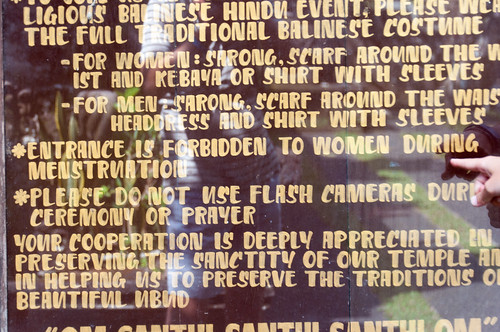 LIGIOUS BALINESE HINDU EVENT, PLEASE WEA
THE FULL TRADITIONAL BALINESE COSTUME
-FOR WOMEN: SARONG, SCARF AROUND THE W
IST AND KEBAYA OR SHIRT WITH SLEEVES
-FOR MEN: SARONG, SCARF AROUND THE WAIS
HEADDRESS AND SHIRT WITH SLEEVES
*ENTRANCE IS FORBIDDEN TO WOMEN DURING
MENSTRUATION
*PLEASE DO NOT USE FLASH CAMERAS DURI
CEREMONY OR PRAYER
YOUR COOPERATION IS DEEPLY APPRECIATED IN
PRESERVING THE SANCTITY OF OUR TEMPLE AN
IN HELPING US TO PRESERVE THE TRADITIONS O
BEAUTIFUL UBUD
"OM SANTHI SANTHI SANTHI OM"